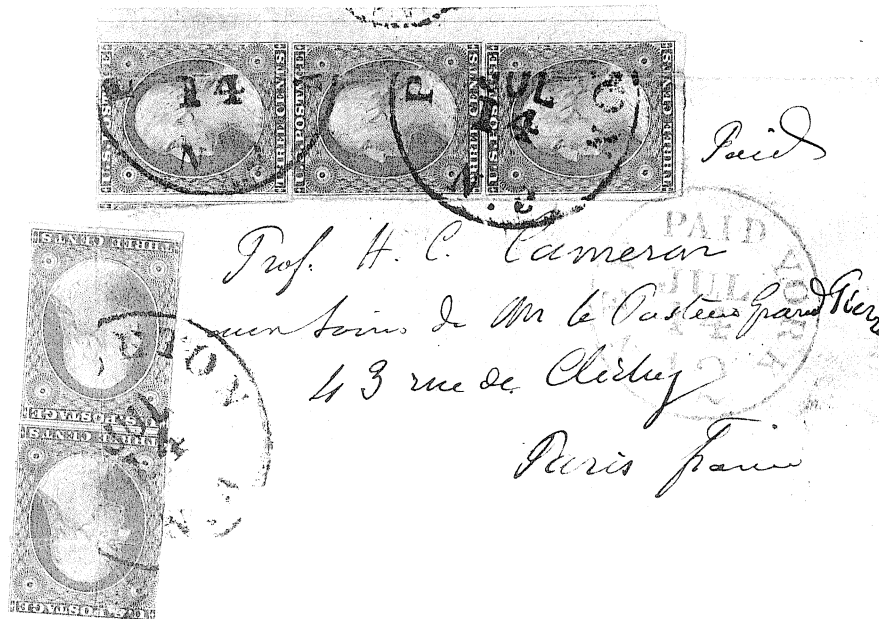 U.S. POSTAGE THREE CENTS
U.S. POSTAGE THREE CENTS
U.S. POSTAGE THREE CENTS
14
N
P
JUL
14
N.C
Paid
PAID
JUL
14
YORK
12
Prof. H. C. Cameron
aux soins de Mr le Pasteur Grand Pierre
43 rue de Clichy
Paris France
THREE CENTS
U.S. POSTAGE
THREE CENTS
U.S. POSTAGE
ETON
JUL
14
N